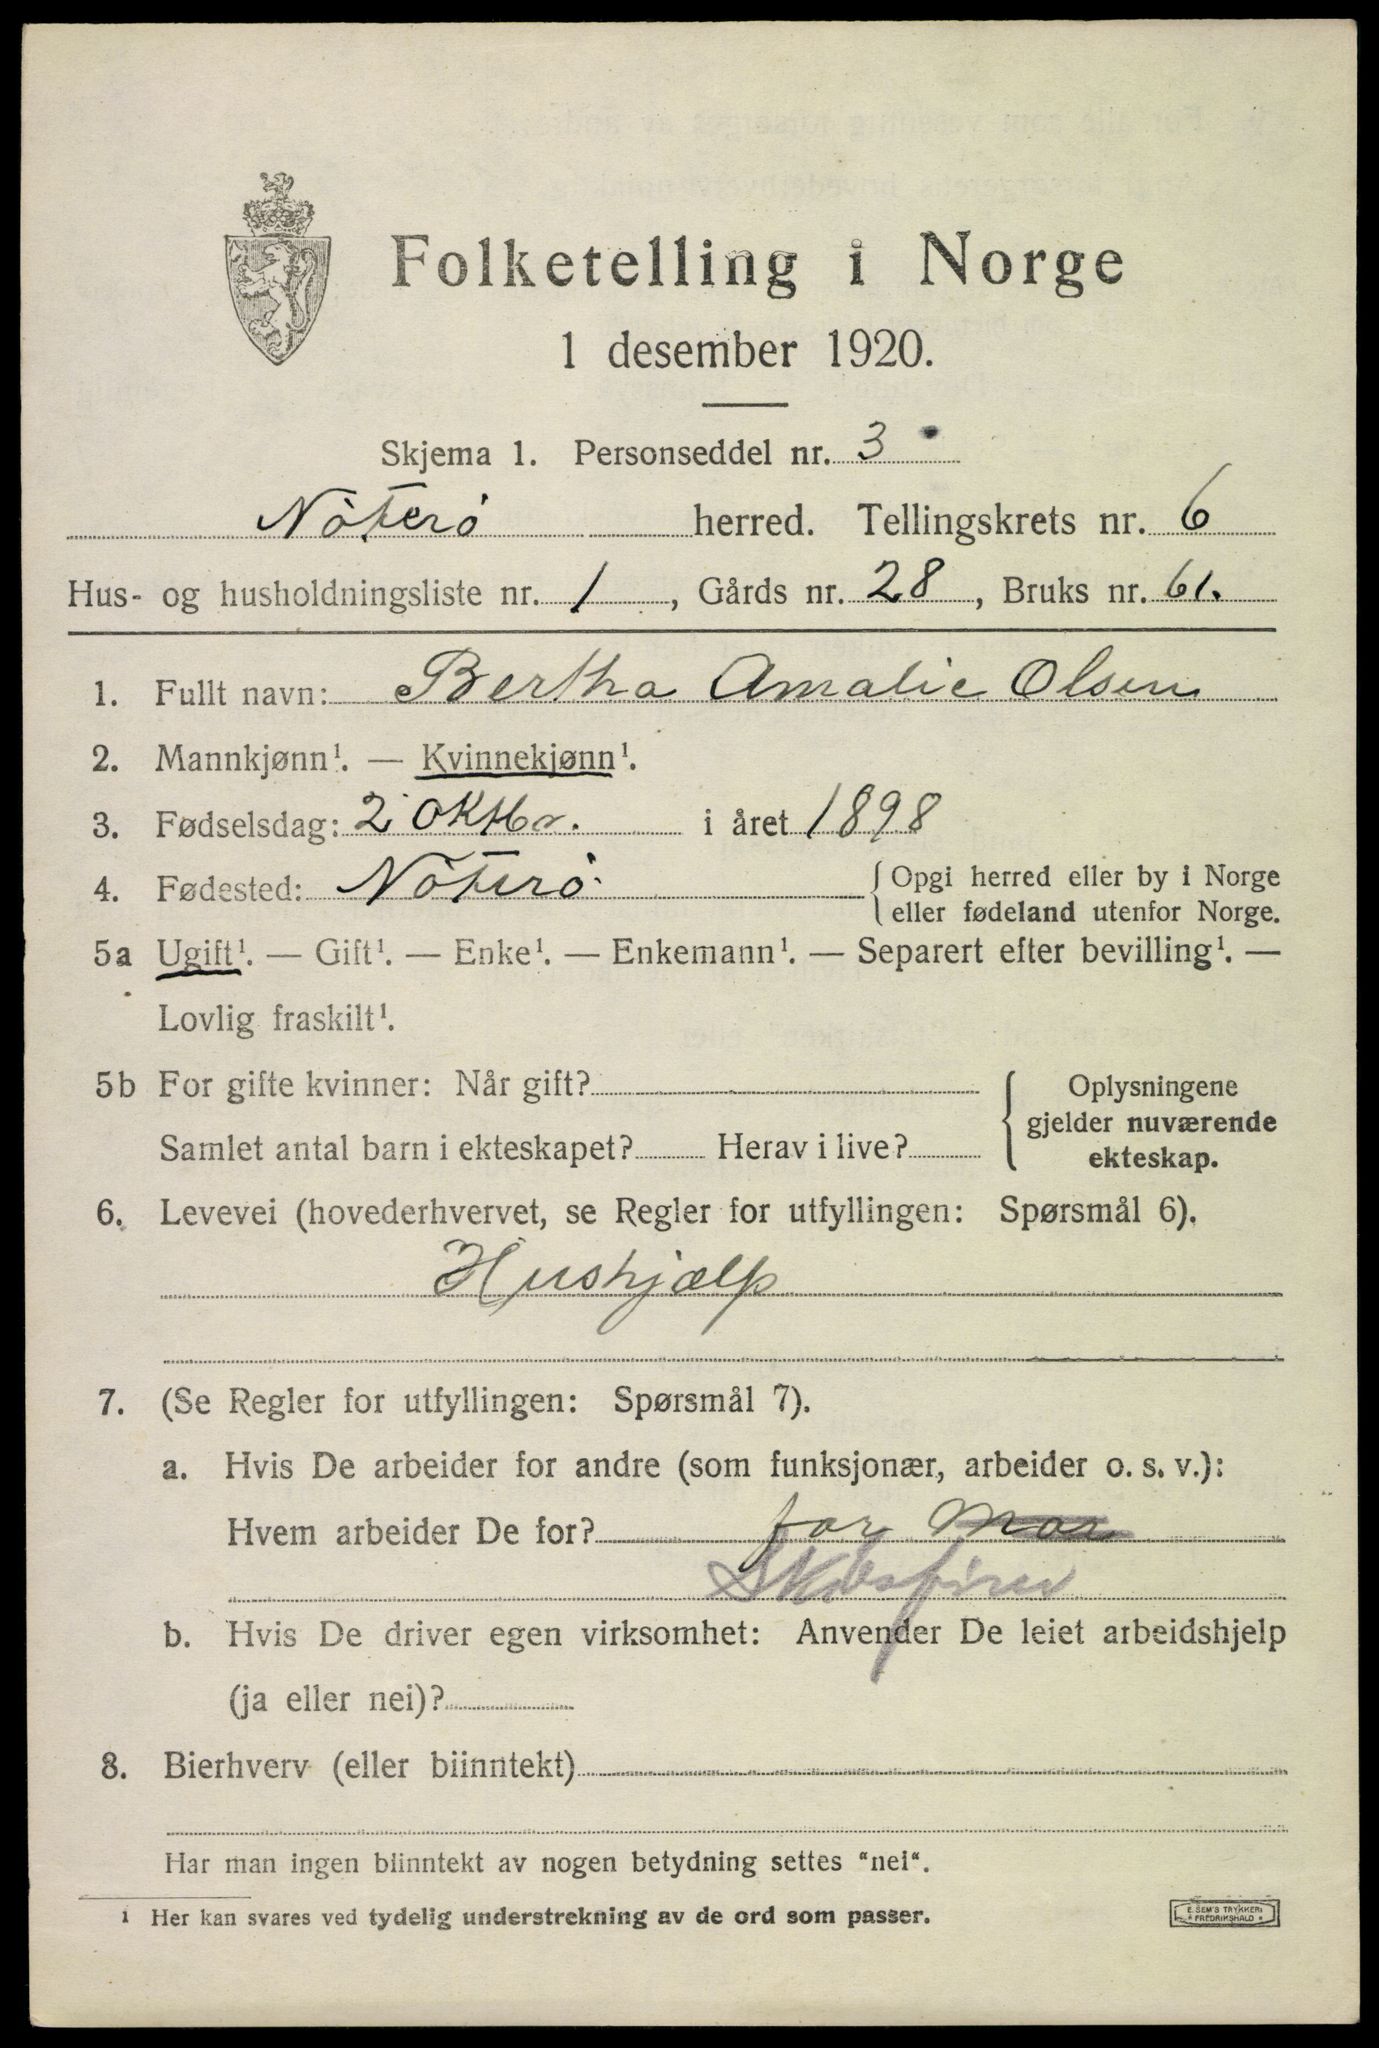 Folketelling i Norge
1 desember 1920.
Skjema 1. Personseddel nr. 3
Nøterø herred. Tellingskrets nr. 6
Hus- og husholdningsliste nr. 1, Gårds nr. 28, Bruks nr. 61.
1. Fullt navn: Bertha Amalie Olsen
2. Mannkjønn¹. — Kvinnekjønn¹.
3. Fødselsdag: 2 oktbr. i året 1898
4. Fødested: Nøterø {Opgi herred eller by i Norge
eller fødeland utenfor Norge.
5a Ugift¹. — Gift¹. — Enke¹. — Enkemann¹. — Separert efter bevilling¹. —
Lovlig fraskilt¹.
5b For gifte kvinner: Når gift? { Oplysningene
gjelder nuværende
Samlet antal barn i ekteskapet? Herav i live?
ekteskap.
6. Levevei (hovederhvervet, se Regler for utfyllingen: Spørsmål 6).
Hushjælp
7. (Se Regler for utfyllingen: Spørsmål 7).
a. Hvis De arbeider for andre (som funksjonær, arbeider o. s. v.):
Hvem arbeider De for? for Mor
Skibsfører
b. Hvis De driver egen virksomhet: Anvender De leiet arbeidshjelp
(ja eller nei)?
8. Bierhverv (eller biinntekt)
Har man ingen biinntekt av nogen betydning settes "nei".
1 Her kan svares ved tydelig understrekning av de ord som passer.
E. SEM'S TRYKKERI
FREDRIKSHALD